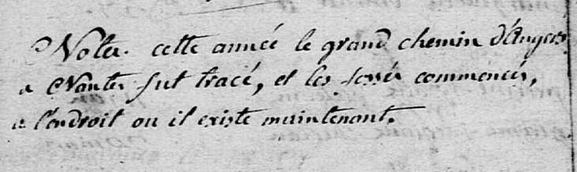 Notez. cette année le grand chemin d'Angers
a Nantes fut tracé, et les fossés commencés,
a l'endroit ou il existe maintenant.